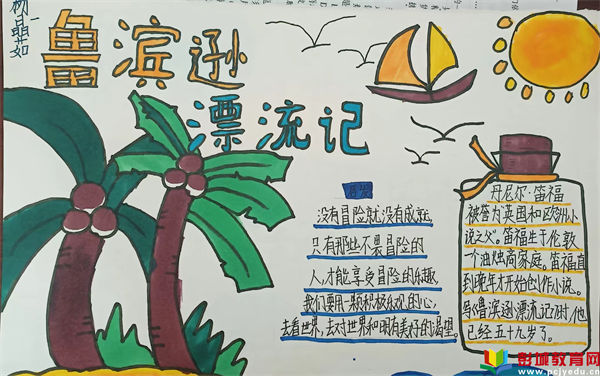 杨晶茹
鲁滨逊
漂流记
没有冒险就没有成就
只有那些不畏冒险的
人,才能享受冒险的乐趣
我们要用一颗积极乐观的心,
去看世界,去对世界和明有美好的渴望。
丹尼尔·笛福
被誉为英国和欧洲小
说之父。笛福生于伦敦
一个油烛商家庭。笛福直
到晚年才开始创作小说。
写《鲁滨逊漂流记》时,他
已经五十九岁了。
彭城教育网
www.pcjyedu.cn